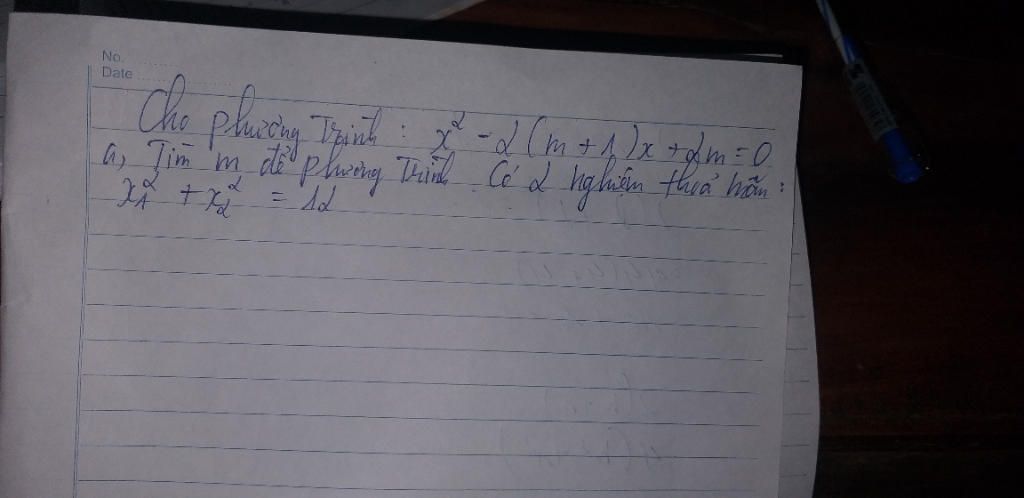 No.
Date
Cho phương trình : x² - 2(m+1)x+2m=0
a, Tìm m để phương trình có 2 nghiệm thoả mãn :
x₁² + x₂² = 12